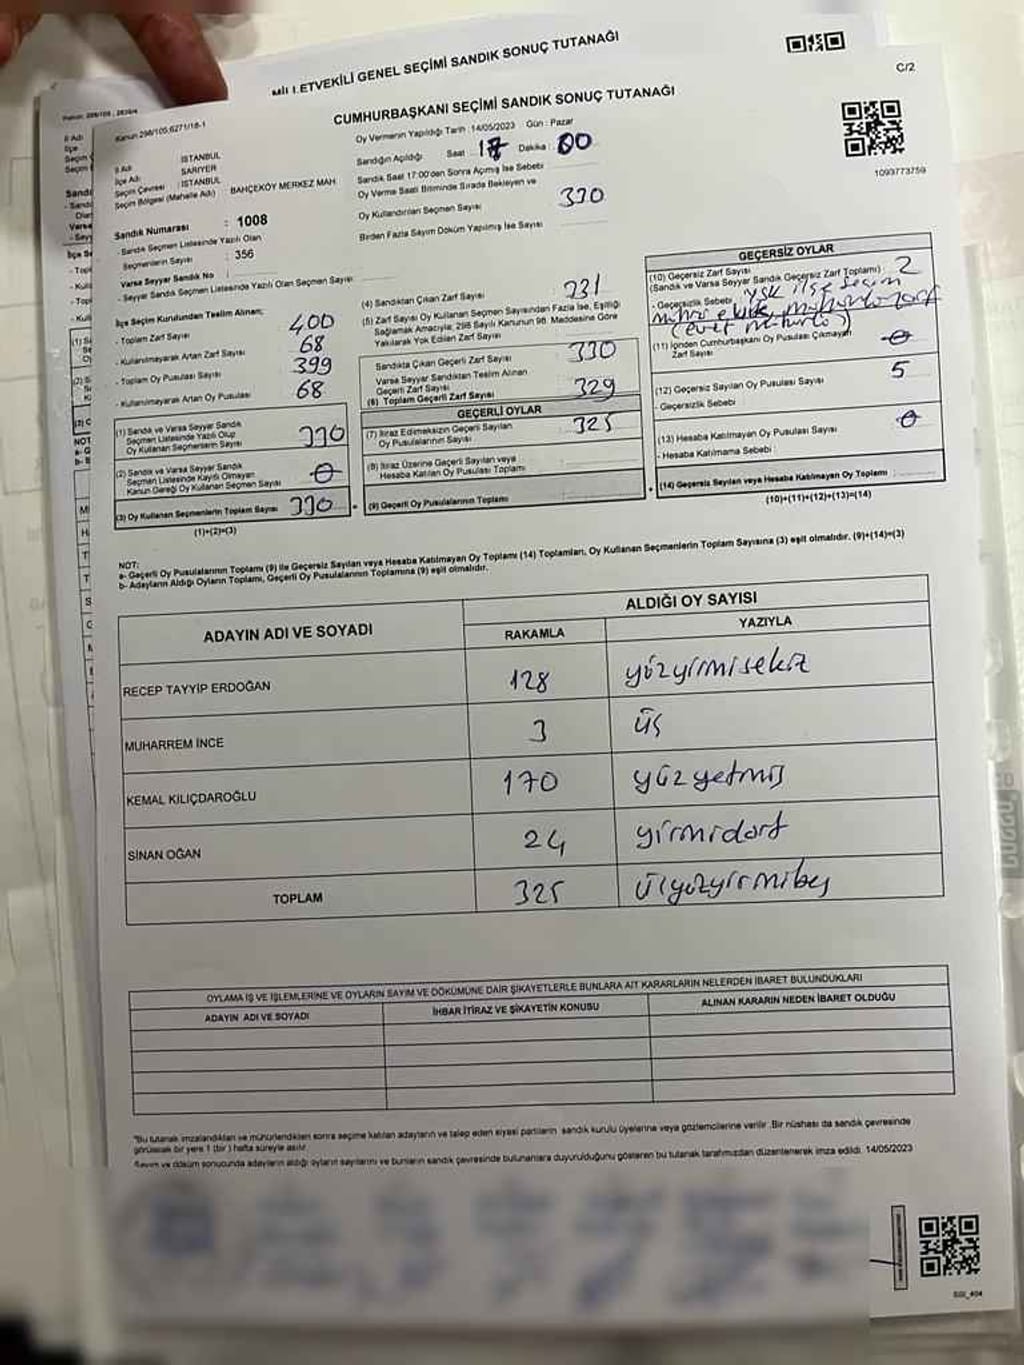 MİLLETVEKİLİ GENEL SEÇİMİ SANDIK SONUÇ TUTANAĞI
C/2
CUMHURBAŞKANI SEÇİMİ SANDIK SONUÇ TUTANAĞI
Kanun 298/105;6271/18-1
Oy Vermenin Yapıldığı Tarih : 14/05/2023 Gün : Pazar
Sandığın Açıldığı Saat 17 Dakika : 00
Sandık Saat 17:00'den Sonra Açımış İse Sebebi
Oy Verme Saati Bitiminde Sırada Bekleyen ve
Oy Kullandırılan Seçmen Sayısı 330
Birden Fazla Sayım Döküm Yapılmış İse Sayısı
1093773759
İl Adı : İSTANBUL
İlçe Adı : SARIYER
Seçim Çevresi : İSTANBUL
Seçim Bölgesi (Mahalle Adı) : BAHÇEKÖY MERKEZ MAH
Sandık Numarası : 1008
- Sandık Seçmen Listesinde Yazılı Olan
Seçmenlerin Sayısı : 356
Varsa Seyyar Sandık No :
- Seyyar Sandık Seçmen Listesinde Yazılı Olan Seçmen Sayısı
İlçe Seçim Kurulundan Teslim Alınan;
- Toplam Zarf Sayısı 400
- Kullanılmayarak Artan Zarf Sayısı 68
- Toplam Oy Pusulası Sayısı 399
- Kullanılmayarak Artan Oy Pusulası 68
(1) Sandık ve Varsa Seyyar Sandık
Seçmen Listesinde Yazılı Olup
Oy Kullanan Seçmenlerin Sayısı 330
(2) Sandık ve Varsa Seyyar Sandık
Seçmen Listesinde Kayıtlı Olmayan
Kanun Gereği Oy Kullanan Seçmen Sayısı 0
(3) Oy Kullanan Seçmenlerin Toplam Sayısı 330
(1)+(2)=(3)
(4) Sandıktan Çıkan Zarf Sayısı 331
(5) Zarf Sayısı Oy Kullanan Seçmen Sayısından Fazla İse, Eşitliği
Sağlamak Amacıyla; 298 Sayılı Kanunun 98. Maddesine Göre
Yakılarak Yok Edilen Zarf Sayısı
Sandıkta Çıkan Geçerli Zarf Sayısı 330
Varsa Seyyar Sandıktan Teslim Alınan
Geçerli Zarf Sayısı
(6) Toplam Geçerli Zarf Sayısı 329
GEÇERLİ OYLAR
(7) İtiraz Edilmeksizin Geçerli Sayılan
Oy Pusulalarının Sayısı 325
(8) İtiraz Üzerine Geçerli Sayılan veya
Hesaba Katılan Oy Pusulası Toplamı
(9) Geçerli Oy Pusulalarının Toplamı
GEÇERSİZ OYLAR
(10) Geçersiz Zarf Sayısı 2
(Sandık ve Varsa Seyyar Sandık Geçersiz Zarf Toplamı)
- Geçersizlik Sebebi ysk ilçe seçim
(11) İçinden Cumhurbaşkanı Oy Pusulası Çıkmayan
Zarf Sayısı 0
(12) Geçersiz Sayılan Oy Pusulası Sayısı 5
- Geçersizlik Sebebi
(13) Hesaba Katılmayan Oy Pusulası Sayısı 0
- Hesaba Katılmama Sebebi
(14) Geçersiz Sayılan veya Hesaba Katılmayan Oy Toplamı
(10)+(11)+(12)+(13)=(14)
NOT:
a- Geçerli Oy Pusulalarının Toplamı (9) ile Geçersiz Sayılan veya Hesaba Katılmayan Oy Toplamı (14) Toplamları, Oy Kullanan Seçmenlerin Toplam Sayısına (3) eşit olmalıdır. (9)+(14)=(3)
b- Adayların Aldığı Oyların Toplamı, Geçerli Oy Pusulalarının Toplamına (9) eşit olmalıdır.
ADAYIN ADI VE SOYADI
ALDIĞI OY SAYISI
RAKAMLA YAZIYLA
RECEP TAYYİP ERDOĞAN 128 yüzyirmisekiz
MUHARREM İNCE 3 üç
KEMAL KILIÇDAROĞLU 170 yüzyetmiş
SİNAN OĞAN 24 yirmidört
TOPLAM 325 üçyüzyirmibeş
OYLAMA İŞ VE İŞLEMLERİNE VE OYLARIN SAYIM VE DÖKÜMÜNE DAİR ŞİKAYETLERLE BUNLARA AİT KARARLARIN NELERDEN İBARET BULUNDUKLARI
ADAYIN ADI VE SOYADI İHBAR İTİRAZ VE ŞİKAYETİN KONUSU ALINAN KARARIN NEDEN İBARET OLDUĞU
"Bu tutanak imzalandıktan ve mühürlendikten sonra seçime katılan adayların ve talep eden siyasi partilerin sandık kurulu üyelerine veya gözlemcilerine verilir. Bir nüshası da sandık çevresinde
görülecek bir yere 1 (bir) hafta süreyle asılır.
Sayım ve döküm sonucunda adayların aldığı oyların sayılarını ve bunların sandık çevresinde bulunanlara duyurulduğunu gösteren bu tutanak tarafımızdan düzenlenerek imza edildi. 14/05/2023